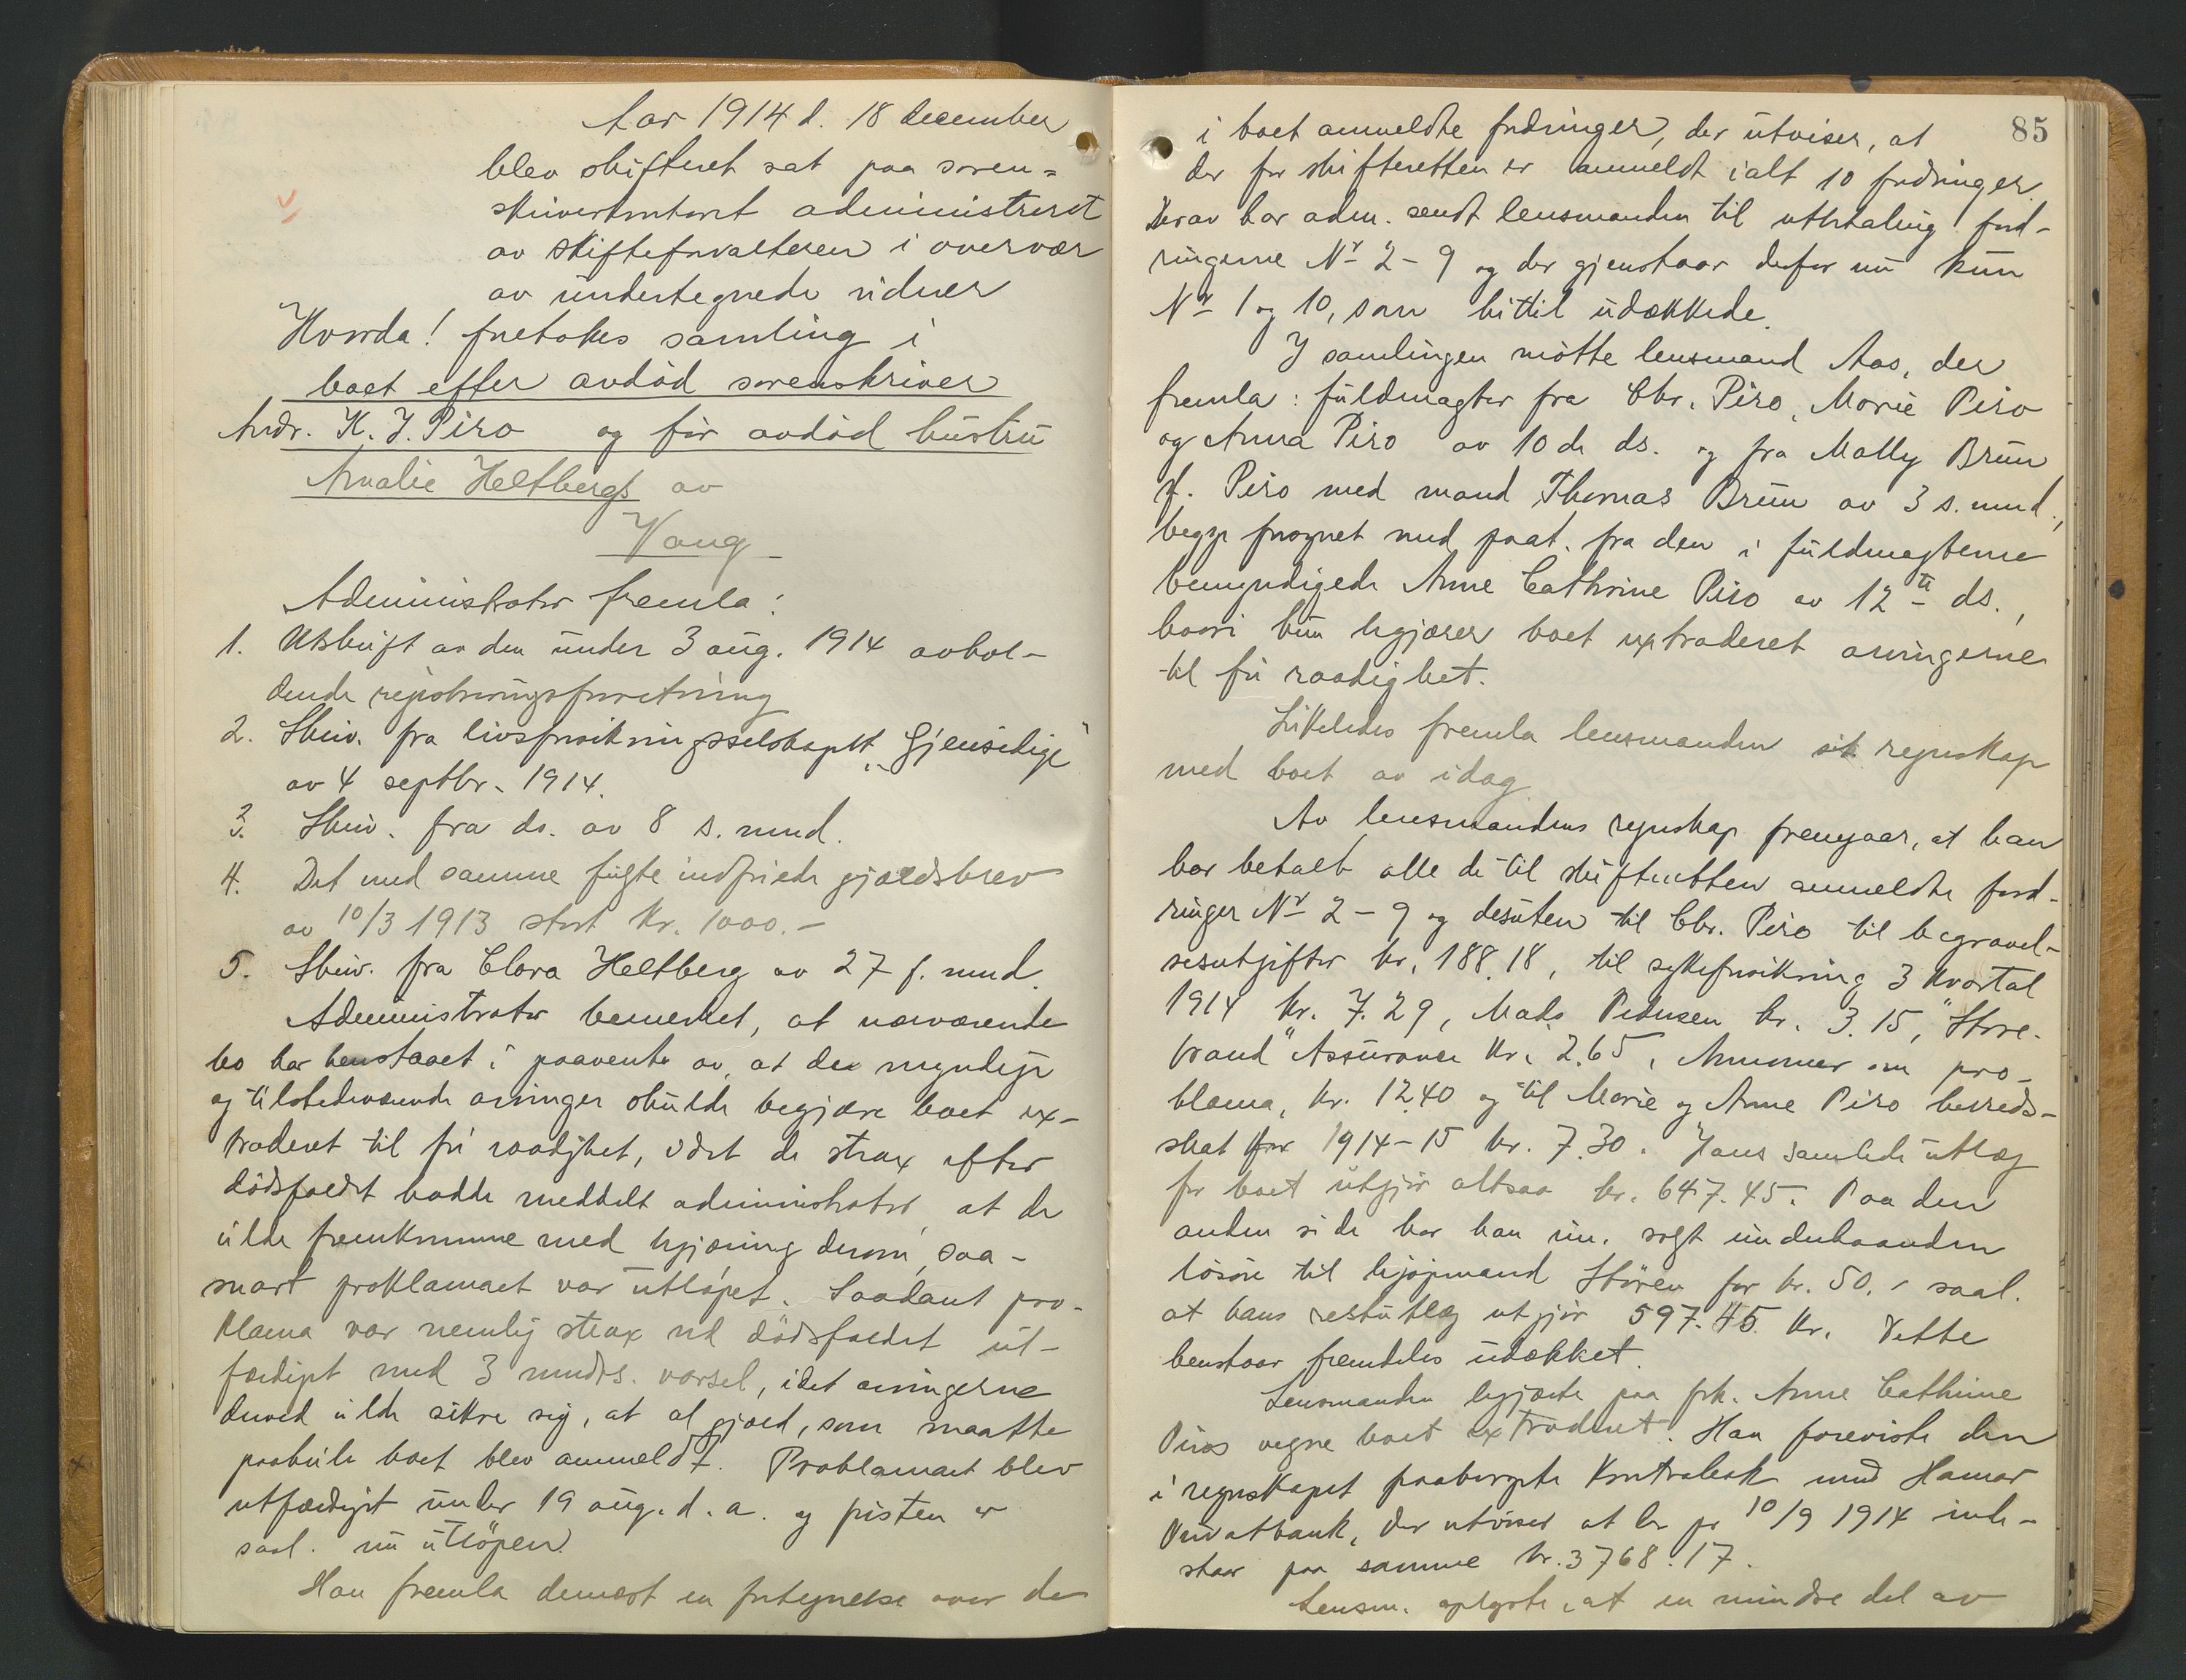 Aar 1914 d. 18 december
blev skifteret sat paa soren-
skriverkontoret administreret
av skifteforvalteren i overvær
av undertegnede vidner
Hvorda! foretokes samling i
boet efter avdød sorenskriver
Andr. K. J. Piro og før avdød hustru
Amalie Heltbergs av
Vang
Administrator fremla:
1. Utskrift av den under 3 aug. 1914 avhol-
dende registreringsforretning
2. Skriv. fra livsforsikringsselskapet "Gjensidige"
av 4 septbr. 1914.
3. Skriv. fra do. av 8 s. mnd.
4. Det med samme fulgte indfriede gjældsbrev
av 10/3 1913 stort Kr. 1000.-
5. Skriv. fra Clara Heltberg av 27 f. mnd.
Administrator bemerket, at nærværende
bo har henstaaet i paavente av, at de myndige
og tilstedeværende arvinger skulde begjære boet ex-
traderet til fri raadighet, idet de strax efter
dødsfaldet hadde meddelt administrator, at de
vilde fremkomme med begjæring derom, saa-
snart proklamaet var utløpet. Saadant pro-
klama var nemlig strax ved dødsfaldet ut-
færdiget med 3 mndrs. varsel, idet arvingerne
derved vilde sikre sig, at al gjæld, som maatte
paahvile boet blev anmeldt. Proklamaet blev
utfærdiget under 19 aug. d. a. og fristen er
saal. nu utløpen.
Han fremla dernæst en fortegnelse over de
85
i boet anmeldte fordringer, der utviser, at
der for skifteretten er anmeldt ialt 10 fordringer.
Derav har adm. sendt lensmanden til utbetaling ford-
ringerne No 2 - 9 og der gjenstaar derfor nu kun
No 1 og 10, som hittil udækkede.
I samlingen møtte lensmand Aas, der
fremla: fuldmagter fra Chr. Piro, Marie Piro
og Anna Piro av 10 de ds. og fra Molly Brun
f. Piro med mand Thomas Brun av 3 s. mnd.,
begge forsynet med paat. fra den i fuldmagterne
bemyndigede Anne Cathrine Piro av 12te ds.,
hvori hun begjærer boet extraderet arvingerne
til fri raadighet.
Likeledes fremla lensmanden sit regnskap
med boet av idag.
Av lensmandens regnskap fremgaar, at han
har betalt alle de til skifteretten anmeldte ford-
ringer No 2 - 9 og desuten til Chr. Piro til begravel-
sesutgifter kr. 188.18, til sykeforsikring 3 kvartal
1914 kr. 7.29, Mads Pedersen kr. 3.15, "Store-
brand" Assurance kr. 2.65, Annoncer om pro-
klama, kr. 12.40 og til Marie og Anne Piro herreds-
skat for 1914-15 kr. 7.30. Hans samlede utlæg
for boet utgjør altsaa kr. 647.45. Paa den
anden side har han solgt underhaanden
løsøre til kjøpmand Støren for kr. 50.- saal.
at hans restutlæg utgjør 597.45 kr. Dette
henstaar fremdeles udækket.
Lensmanden begjærte paa frk. Anne Cathrine
Piros vegne boet extraderet. Han foreviste den
i regnskapet paaberopte Kontrabok med Hamar
Privatbank, der utviser at der pr 10/9 1914 inde-
staar paa samme kr. 3768.17.
Lensm. oplyste, at en mindre del av